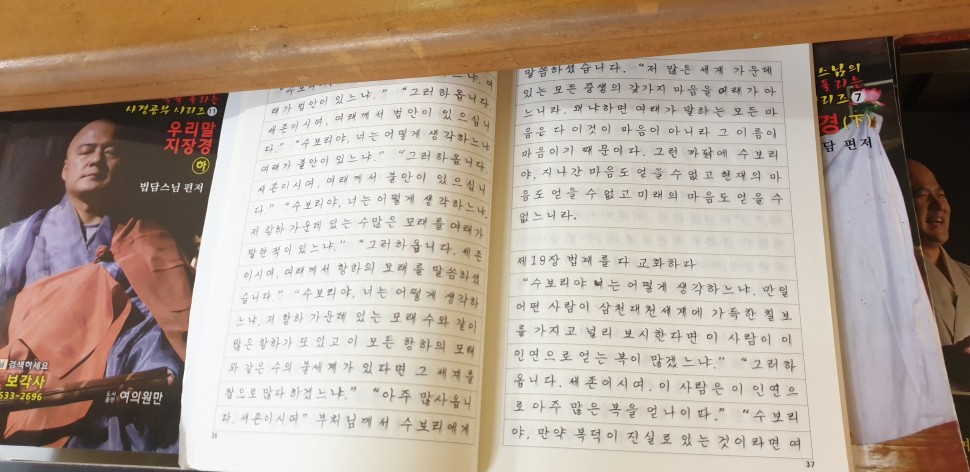 복 푸리는
사경공부 시리즈 11
우리말
지장경
하
법담스님 편저
검색하세요
보각사
533-2696
도서출판 여의원만
"수보리
래가 법안이 있느냐." "그러하옵니다.
세존이시여, 여래께서 법안이 있으십니
다." "수보리야, 너는 어떻게 생각하느냐
여래가 불안이 있느냐." "그러하옵니다.
세존이시여, 여래께서 불안이 있으십니
다." "수보리야, 너는 어떻게 생각하느냐,
저 항하 가운데 있는 수많은 모래를 여래가
말한적이 있느냐." "그러하옵니다. 세존
이시여, 여래께서 항하의 모래를 말씀하셨
습니다." "수보리야, 너는 어떻게 생각하
느냐, 저 항하 가운데 있는 모래 수와 같이
많은 항하가 또 있고 이 모든 항하의 모래
와 같은 수의 불세계가 있다면 그 세계를
참으로 많다 하겠느냐." "아주 많사옵니
다. 세존이시여" 부처님께서 수보리에게
36
말씀하셨습니다. "저 많은 세계 가운데
있는 모든 중생의 갖가지 마음을 여래가 아
느니라. 왜냐하면 여래가 말하는 모든 마
음은 다 이것이 마음이 아니라 그 이름이
마음이기 때문이다. 그런 까닭에 수보리
야, 지나간 마음도 얻을 수 없고 현재의 마
음도 얻을 수 없고 미래의 마음도 얻을 수
없느니라.
제19장 법계를 다 교화하다
"수보리야 너는 어떻게 생각하느냐. 만일
어떤 사람이 삼천대천세계에 가득한 칠보
를 가지고 널리 보시한다면 이 사람이 이
인연으로 얻는 복이 많겠느냐." "그러하
옵니다. 세존이시여. 이 사람은 이 인연으
로 아주 많은 복을 얻나이다." "수보리
야, 만약 복덕이 진실로 있는 것이라면 여
37
스님의
푸리는
리즈 7
경(下)
담 편저